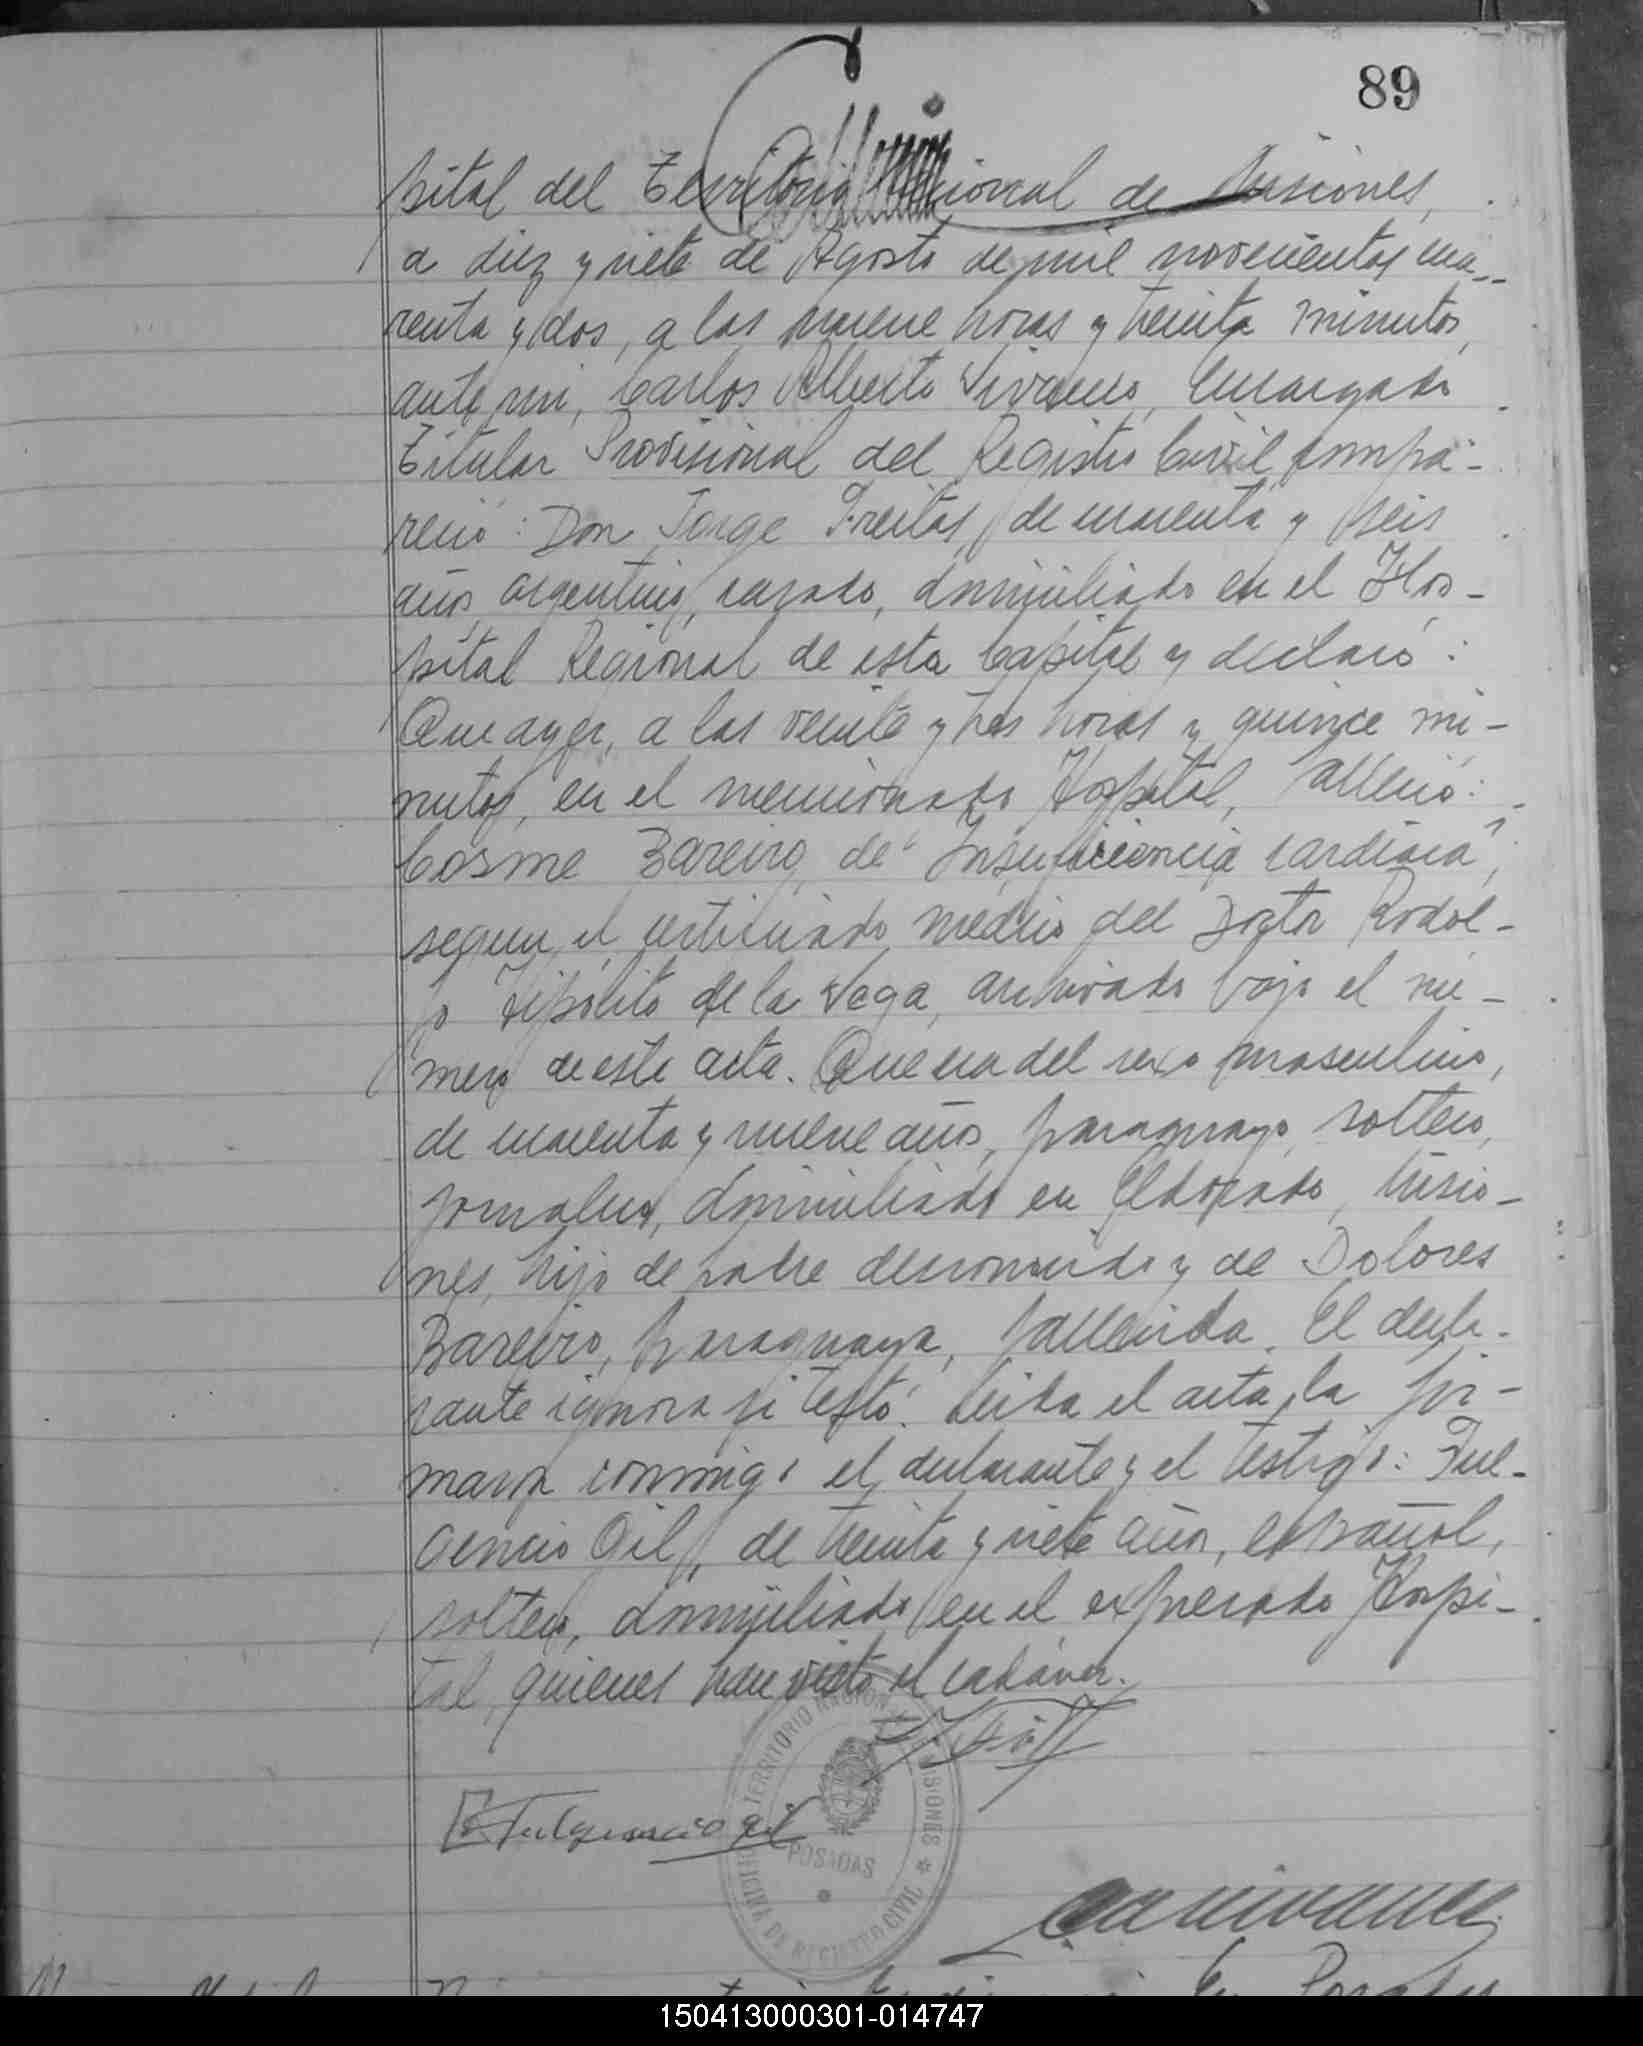 89
pital del Territorio Nacional de Misiones,
a diez y siete de Agosto de mil novecientos cua-
renta y dos, a las nueve horas y treinta minutos,
ante mi, Carlos Alberto Vivanco, Encargado
Titular Provisional del Registro Civil, compa-
reció: Don Jorge Freitas, de cuarenta y seis
años, argentino, casado, domiciliado en el Hos-
pital Regional de esta Capital y declaró:
Que ayer, a las veinte y tres horas y quince mi-
nutos, en el mencionado Hospital, falleció:
Cosme Bareiro, de "Insuficiencia cardiaca",
segun el certificado médico del Doctor Rodol-
fo Hipólito de la Vega, archivado bajo el nú-
mero de este acta. Que era del sexo masculino,
de cuarenta y nueve años, paraguayo, soltero,
jornalero, domiciliado en Eldorado, Misio-
nes, hijo de padre desconocido y de Dolores
Bareiro, paraguaya, fallecida. El decla-
rante ignora si testó. Leida el acta, la fir-
maron conmigo el declarante y el testigo: Ful-
gencio Gil, de treinta y siete años, español,
soltero, domiciliado en el expresado Hospi-
tal, quienes han visto el cadáver.
Fulgencio gil
OFICINA DE REGISTRO CIVIL
TERRITORIO NACIONAL MISIONES
POSADAS
150413000301-014747